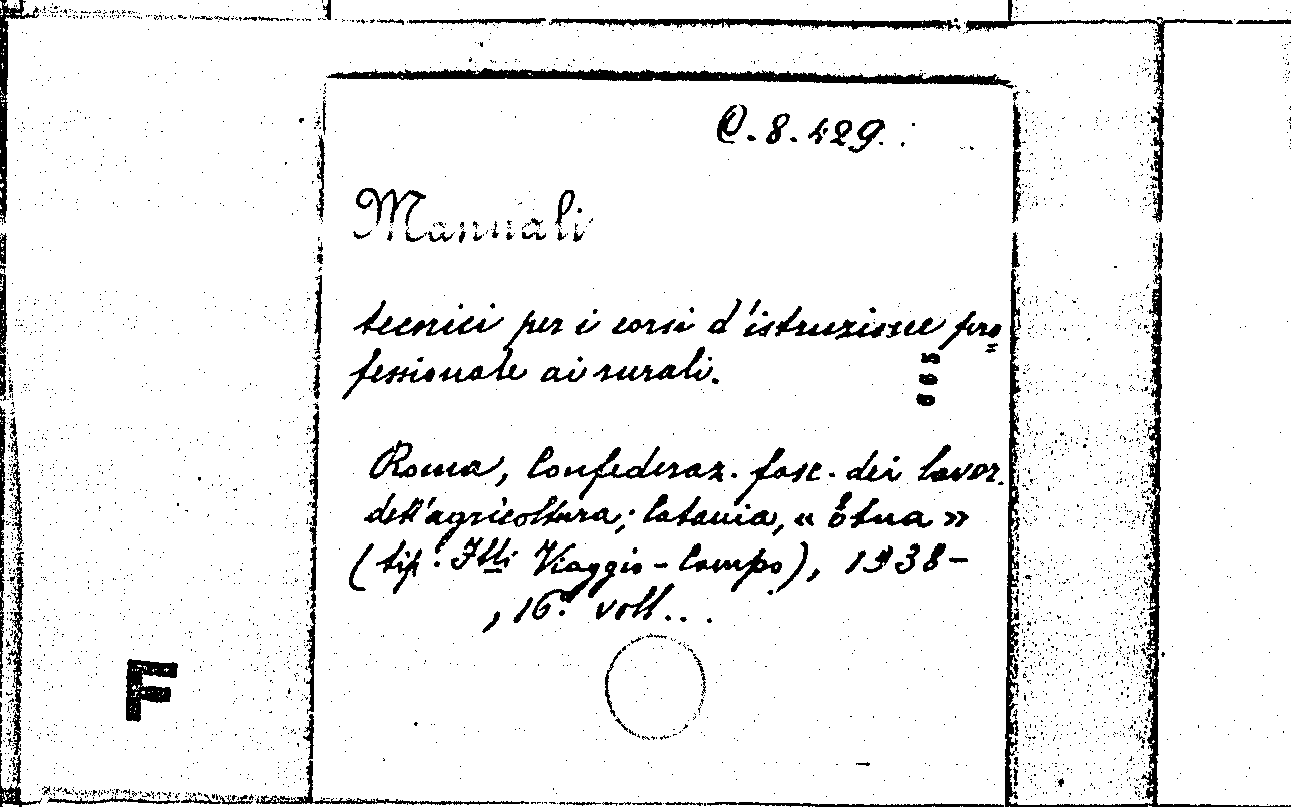 C. 8. 429.
Manuali
tecnici per i corsi d'istruzione pro=
fessionale ai rurali.
665
Roma, Confederaz. fasc. dei lavor.
dell'agricoltura; Catania, « Etna »
(tip. Flli Viaggio-Campo), 1938-
, 16º voll...
F